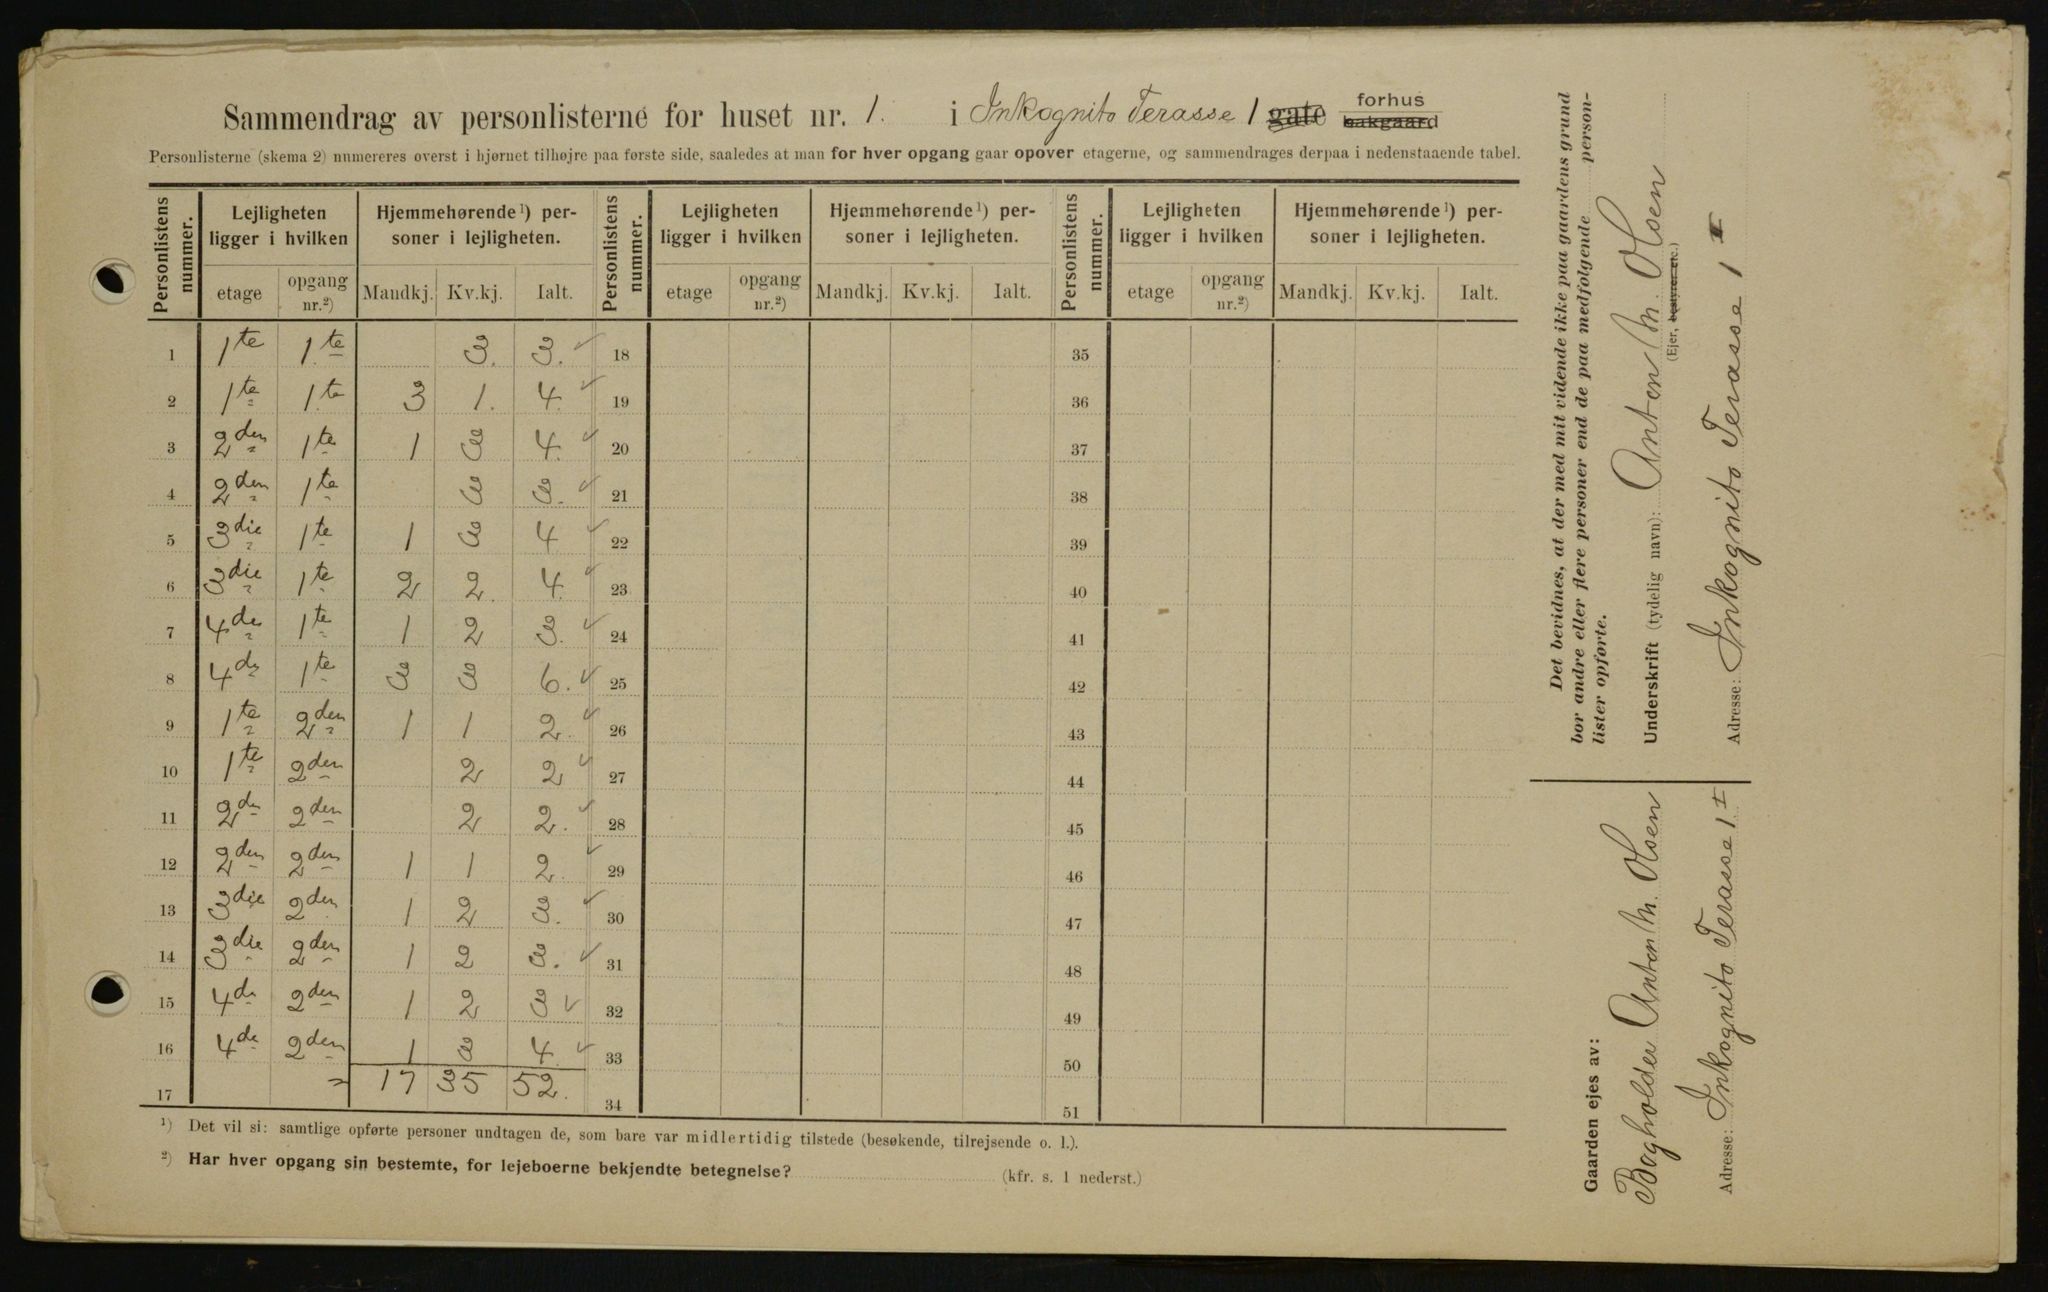 Sammendrag av personlisterne for huset nr. 1. i Inkognito Terasse 1 gate forhus bakgaard
Personlisterne (skema 2) numereres øverst i hjørnet tilhøjre paa første side, saaledes at man for hver opgang gaar opover etagerne, og sammendrages derpaa i nedenstaaende tabel.
Personlistens nummer. Lejligheten ligger i hvilken Hjemmehørende ¹) personer i lejligheten. Personlistens nummer. Lejligheten ligger i hvilken Hjemmehørende ¹) personer i lejligheten. Personlistens nummer. Lejligheten ligger i hvilken Hjemmehørende ¹) personer i lejligheten.
etage opgang nr.²) Mandkj. Kv.kj. Ialt. etage opgang nr.²) Mandkj. Kv.kj. Ialt. etage opgang nr.²) Mandkj. Kv.kj. Ialt.
1 1te 1te 3. 3. ✓ 18 35
2 1te 1te 3 1. 4. ✓ 19 36
3 2den 1te 1 3 4. ✓ 20 37
4 2den 1te 3 3. ✓ 21 38
5 3die 1te 1 3 4 ✓ 22 39
6 3die 1te 2 2. 4. ✓ 23 40
7 4de 1te 1 2 3. ✓ 24 41
8 4de 1te 3 3 6. ✓ 25 42
9 1te 2den 1 1 2. ✓ 26 43
10 1te 2den 2 2 ✓ 27 44
11 2den 2den 2 2. ✓ 28 45
12 2den 2den 1 1 2. ✓ 29 46
13 3die 2den 1 2 3. ✓ 30 47
14 3die 2den 1 2 3. ✓ 31 48
15 4de 2den 1 2 3 ✓ 32 49
16 4de 2den 1 3 4. ✓ 33 50
17 = 17 35 52. 34 51
¹) Det vil si: samtlige opførte personer undtagen de, som bare var midlertidig tilstede (besøkende, tilrejsende o. l.).
²) Har hver opgang sin bestemte, for lejeboerne bekjendte betegnelse? (kfr. s. 1 nederst.)
Det bevidnes, at der med mit vidende ikke paa gaardens grund
bor andre eller flere personer end de paa medfølgende person-
lister opførte.
Underskrift (tydelig navn): Anton M. Olsen
(Ejer, bestyrer etc.)
Adresse: Inkognito Terasse 1 I
Gaarden ejes av:
Bagholder Anton M. Olsen
Adresse: Inkognito Terasse 1 I